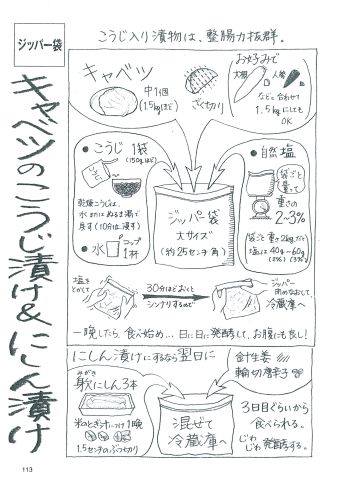 ジッパー袋
キャベツのこうじ漬け&にしん漬け
こうじ入り漬物は、整腸力抜群。
キャベツ
中1個
(1.5kgほど)
ざく切り
お好みで
大根
人参
などと合わせて
1.5kgにしても
OK
●こうじ 1袋
(150gほど)
乾燥こうじは、
水またはぬるま湯で
戻す(10分は浸す)
●水
コップ
1杯
ジッパー袋
大サイズ
(約25センチ角)
●自然塩
袋ごと
量って
重さの
2~3%
袋ごと重さ2kgだと
塩は40g~60g
(2%) (3%)
塩を
とかして
30分ほどおくと
シンナリするので
ジッパー
閉めなおして
冷蔵庫へ
一晩したら、食べ始め…日に日に発酵して、お腹にも良し!
にしん漬けにするなら翌日に
みがき
軟にしん3本
米のとぎ汁につけ1晩
1.5センチのぶつ切り
針生姜
輪切唐辛子
混ぜて
冷蔵庫へ
3日目ぐらいから
食べられる。
じわじわ発酵する。
113